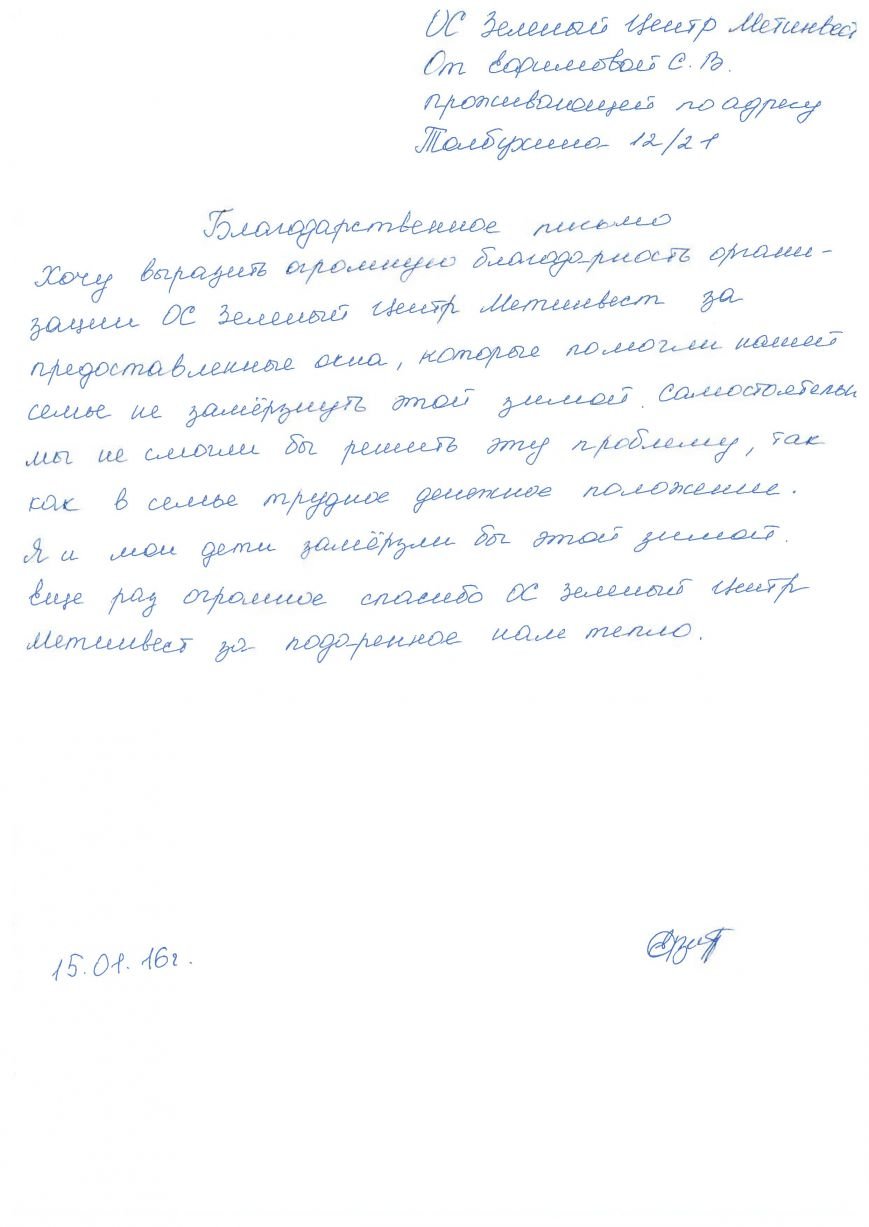 ОС Зеленый Центр Метинвест
От С. В.
проживающей по адресу
Толбухина 12/21
Благодарственное письмо
Хочу выразить огромную благодарность органи-
зации ОС Зеленый Центр Метинвест за
предоставленные окна, которые помогли нашей
семье не замёрзнуть этой зимой. Самостоятельн
мы не смогли бы решить эту проблему, так
как в семье трудное денежное положение.
Я и мои дети замёрзли бы этой зимой.
Еще раз огромное спасибо ОС Зеленый Центр
Метинвест за подаренное нам тепло.
15.01.16г.